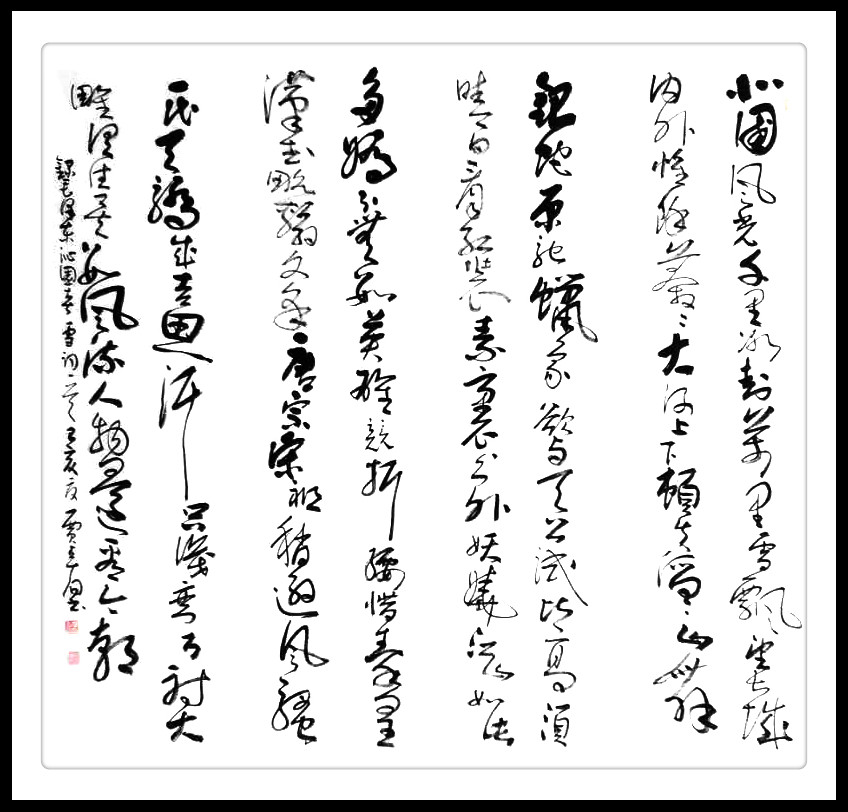 北國風光千里冰封萬里雪飄望長城
内外惟餘莽莽大河上下頓失滔滔山舞
銀蛇原馳蠟象欲與天公試比高須
晴日看紅裝素裹分外妖嬈江山如此
多嬌引無數英雄競折腰惜秦皇
漢武略輸文采唐宗宋祖稍遜風騷
一代天驕成吉思汗只識彎弓射大
雕俱往矣數風流人物還看今朝
錄毛澤東沁園春雪詞一首己亥夏賈